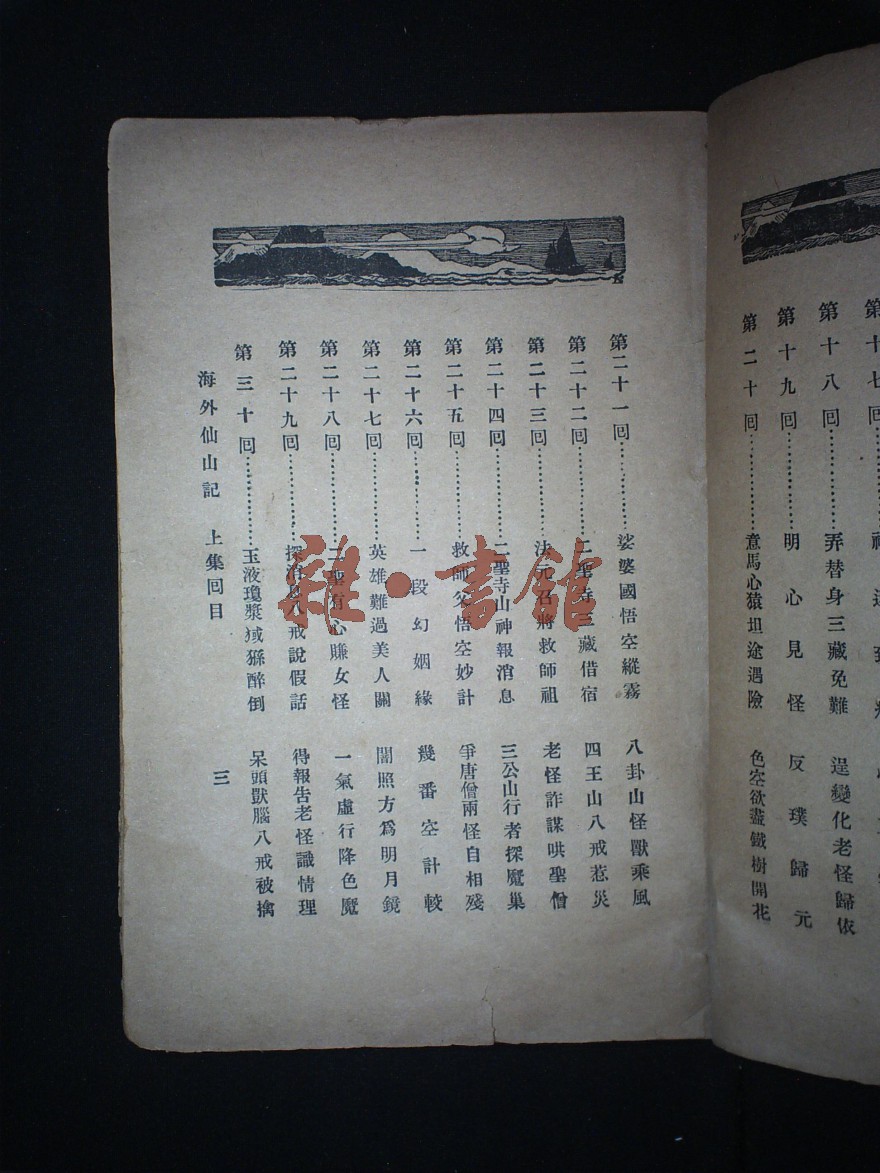 第十七
第十八回…………弄替身三藏免難　逞變化老怪歸依
第十九回…………明心見怪　反璞歸元
第二十回…………意馬心猿坦途遇險　色空欲盡鐵樹開花
第二十一回…………娑婆國悟空縱霧　八卦山怪獸乘風
第二十二回…………二聖寺三藏借宿　四王山八戒惹災
第二十三回…………法元召將救師祖　老怪詐謀哄聖僧
第二十四回…………二聖寺山神報消息　三公山行者探魔巢
第二十五回…………救師父悟空妙計　爭唐僧兩怪自相殘
第二十六回…………一段幻姻緣　幾番空計較
第二十七回…………英雄難過美人關　闇照方爲明月鏡
第二十八回…………二聖有心賺女怪　一氣虛行降色魔
第二十九回…………探消息八戒說假話　得報告老怪識情理
第三十回…………玉液瓊漿猢猻醉倒　呆頭獸腦八戒被擒
海外仙山記　上集回目　三
雜·書館